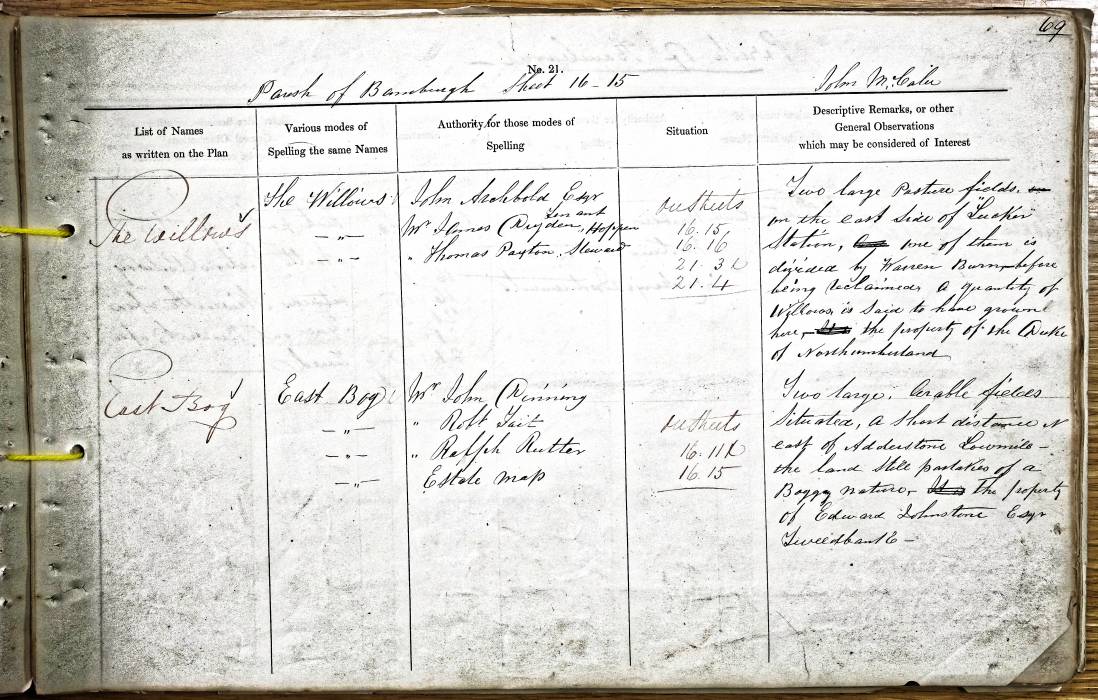 69
No. 21.
Parish of Bamburgh Sheet 16-15 John McCabe
List of Names
as written on the Plan
Various modes of
Spelling the same Names
Authority for those modes of
Spelling
Situation
Descriptive Remarks, or other
General Observations
which may be considered of Interest
The Willows
The Willows
—„—
—„—
John Archbold Esqr
Mr Thomas Dryden, Tenant, Hoppen
„ Thomas Paxton, Steward
On Sheets
16.15,
16.16
21.3
21.4
Two large Pasture fields,
on the east side of "Lucker"
Station, one of them is
divided by Warren Burn, before
being reclaimed, a quantity of
Willows is said to have grown
here, the property of the Duke
of Northumberland
East Bog
East Bog
—„—
—„—
—„—
Mr John Dinning
„ Robt Tait
„ Ralph Rutter
Estate map
On Sheets
16.11
16.15
Two large, arable fields
Situated, a short distance N
east of Adderstone Lowmill -
the land still partakes of a
Boggy nature, the property
of Edward Johnstone Esqr
Tweedbank -